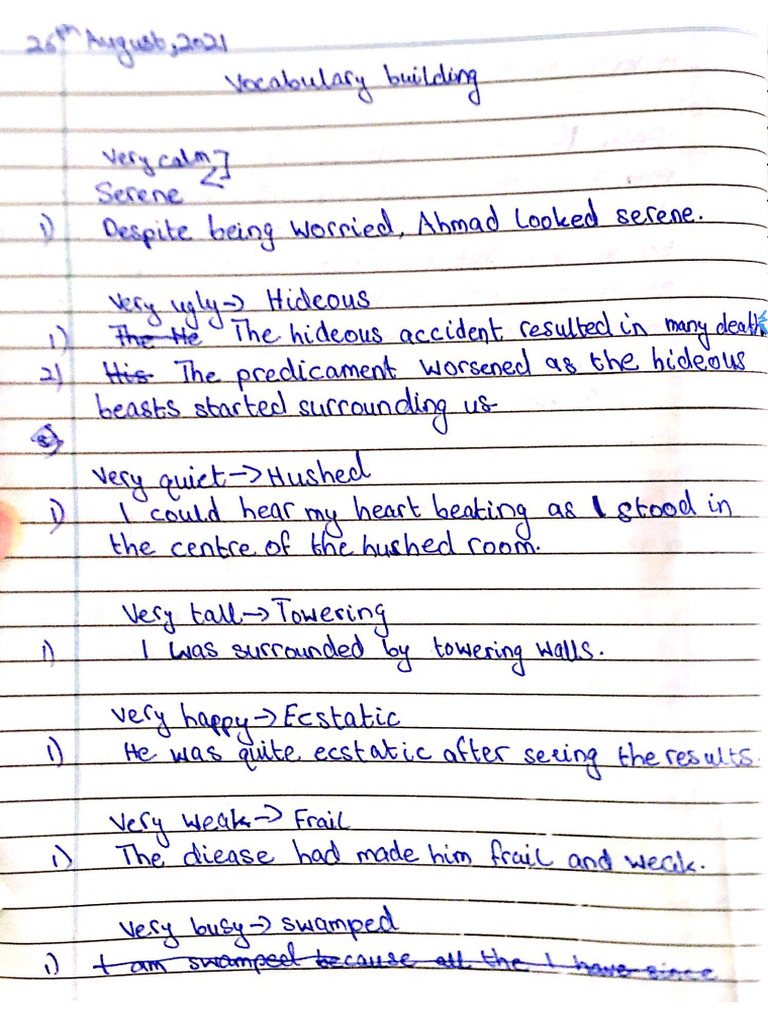 26th August, 2021
Vocabulary building
Very calm
Serene
1) Despite being worried, Ahmad looked serene.
Very ugly → Hideous
1) The He The hideous accident resulted in many deaths
2) His The predicament worsened as the hideous
beasts started surrounding us
Very quiet → Hushed
1) I could hear my heart beating as I stood in
the centre of the hushed room.
Very tall → Towering
1) I was surrounded by towering walls.
Very happy → Ecstatic
1) He was quite ecstatic after seeing the results.
Very weak → Frail
1) The diease had made him frail and weak.
Very busy → swamped
1) I am swamped because all the I have since